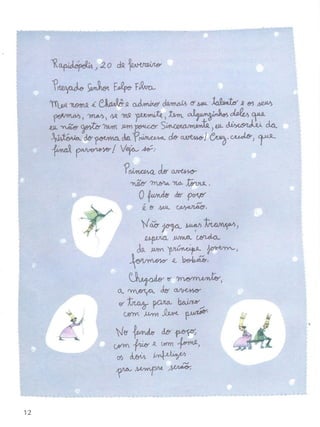 Rapidópolis, 20 de fevereiro
Prezado Senhor Felpo Filva
Meu nome é Charlô e admiro demais o seu talento e os seus
poemas, mas, se me permite, tem alguns deles que
eu não gosto nem um pouco. Sinceramente, eu discordei da
história do poema da Princesa do avesso! Crez-credo, que
final pavoroso! Veja só:
Princesa do avesso
não mora na torre.
O fundo do poço
é o seu casarão.
Não joga suas tranças,
espera uma corda
de um príncipe jovem,
formoso e bobão.
Chegado o momento,
a moça do avesso
o traz para baixo
com um leve puxão.
No fundo do poço,
com frio e com fome,
os dois infelizes
pra sempre serão.
12